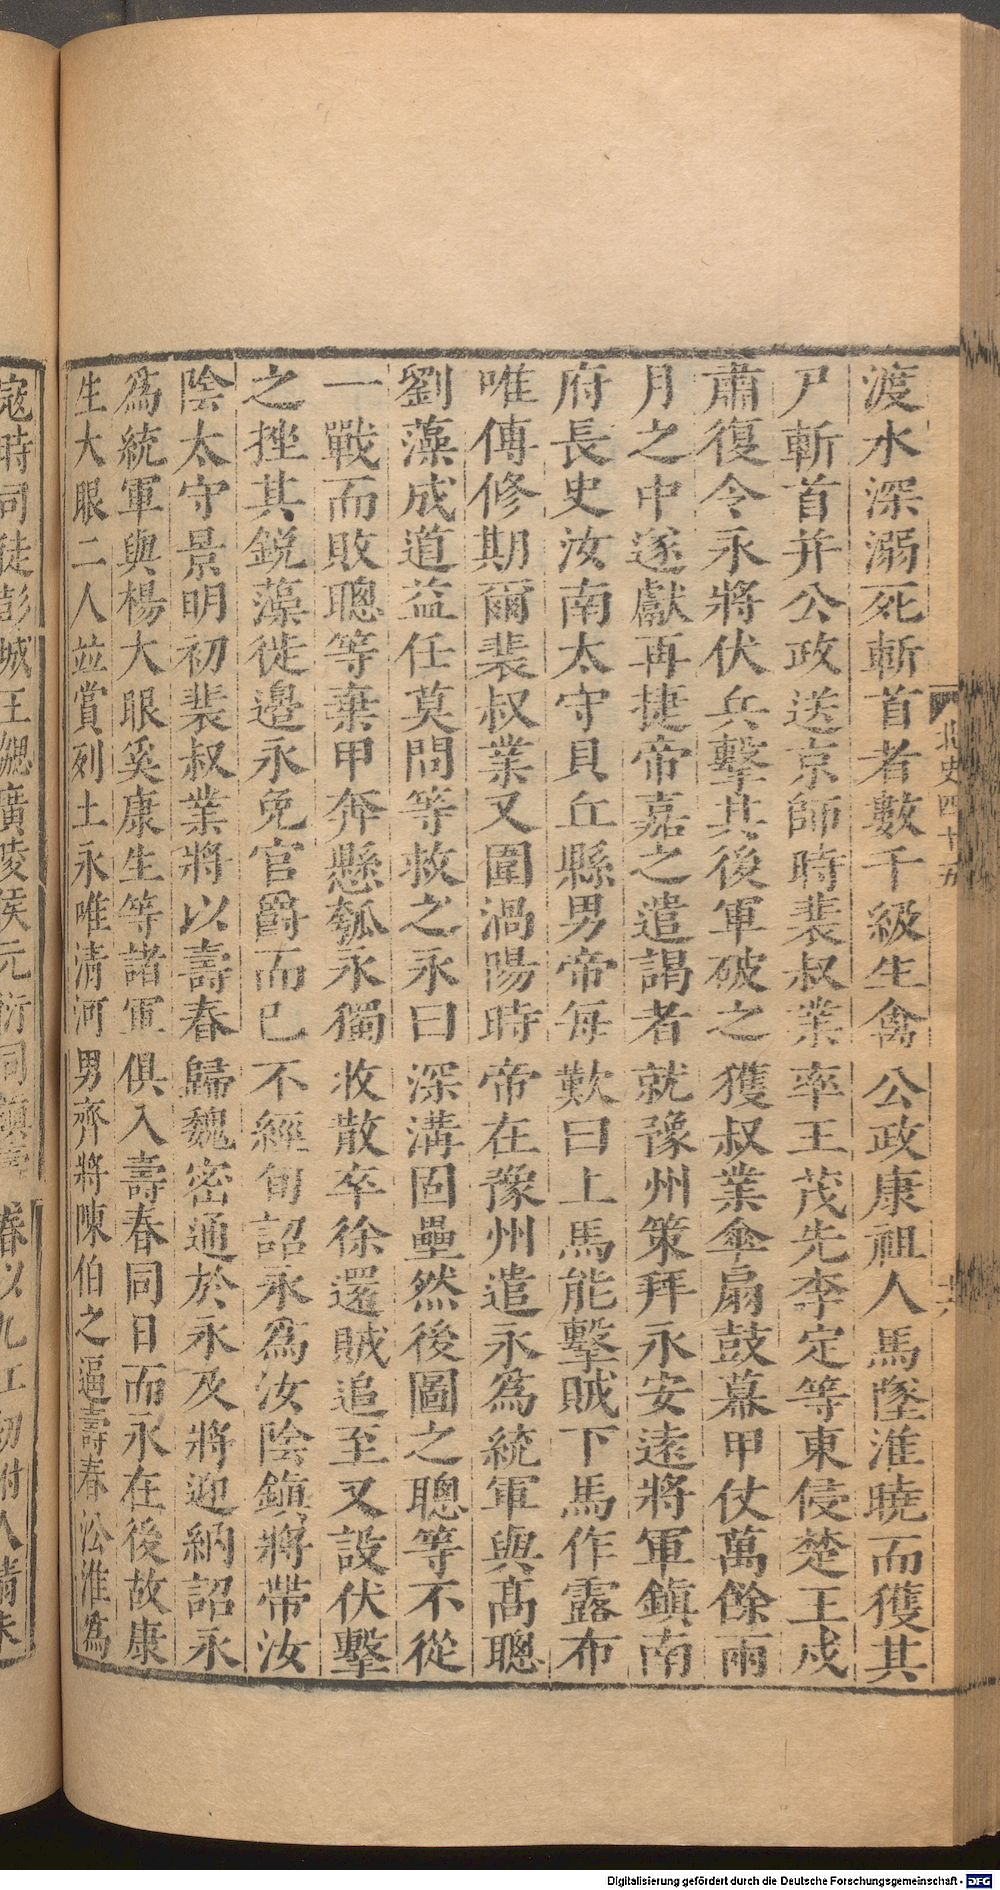 渡水深溺死斬首者數千級生禽公政康祖人馬墜淮曉而獲其
尸斬首并公政送京師時裴叔業率王茂先李定等東侵楚王戍
肅復令永將伏兵擊其後軍破之獲叔業傘扇鼓幕甲仗萬餘兩
月之中遂獻再捷帝嘉之遣謁者就豫州策拜永安遠將軍鎮南
府長史汝南太守貝丘縣男帝每歎曰上馬能擊賊下馬作露布
唯傅修期爾裴叔業又圍渦陽時帝在豫州遣永為統軍與高聰
劉藻成道益任莫問等救之永曰深溝固壘然後圖之聰等不從
一戰而敗聰等棄甲奔懸瓠永獨收散卒徐還賊追至又設伏擊
之挫其銳藻徙邊永免官爵而已不經旬詔永為汝陰鎮將帶汝
陰太守景明初裴叔業將以壽春歸魏密通於永及將迎納詔永
為統軍與楊大眼奚康生等諸軍俱入壽春同日而永在後故康
生大眼二人並賞列土永唯清河男齊將陳伯之逼壽春㳂淮為
寇時司徒彭城王勰廣陵侯元衍同鎮壽春以九江初附人情未
北史四十五
十六
Digitalisierung gefördert durch die Deutsche Forschungsgemeinschaft - DFG